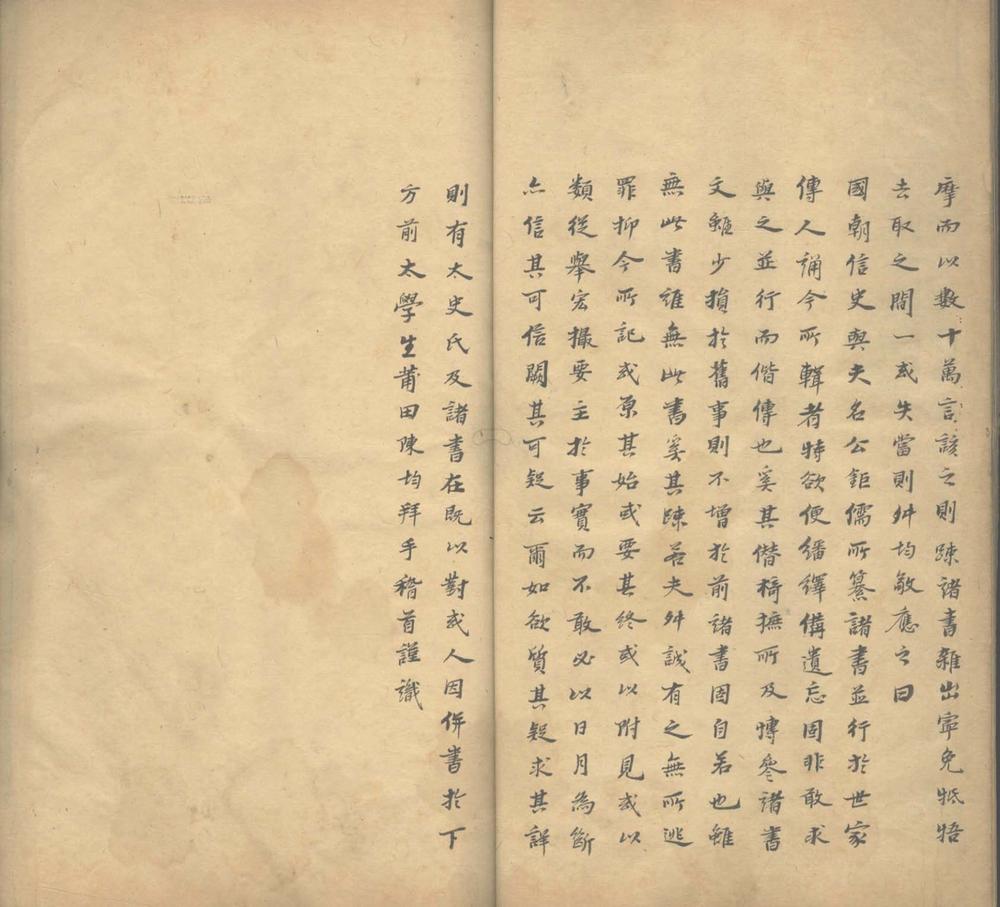 摩而以數十萬言該之則踈諸書雜出寧免牴牾
去取之間一或失當則舛均敬應之曰
國朝信史與夫名公鉅儒所纂諸書並行於世家
傳人誦今所輯者特欲便繙繹備遺忘固非敢求
與之並行而偕傳也奚其僭掎摭所及博參諸書
文雖少損於舊事則不增於前諸書固自若也雖
無此書誰無此書奚其踈若夫舛誠有之無所逃
罪抑今所記或原其始或要其終或以附見或以
類從舉宏撮要主於事實而不敢必以日月為斷
亦信其可信闕其可疑云爾如欲質其疑求其詳
則有太史氏及諸書在既以對或人因併書於下
方前太學生莆田陳均拜手稽首謹識